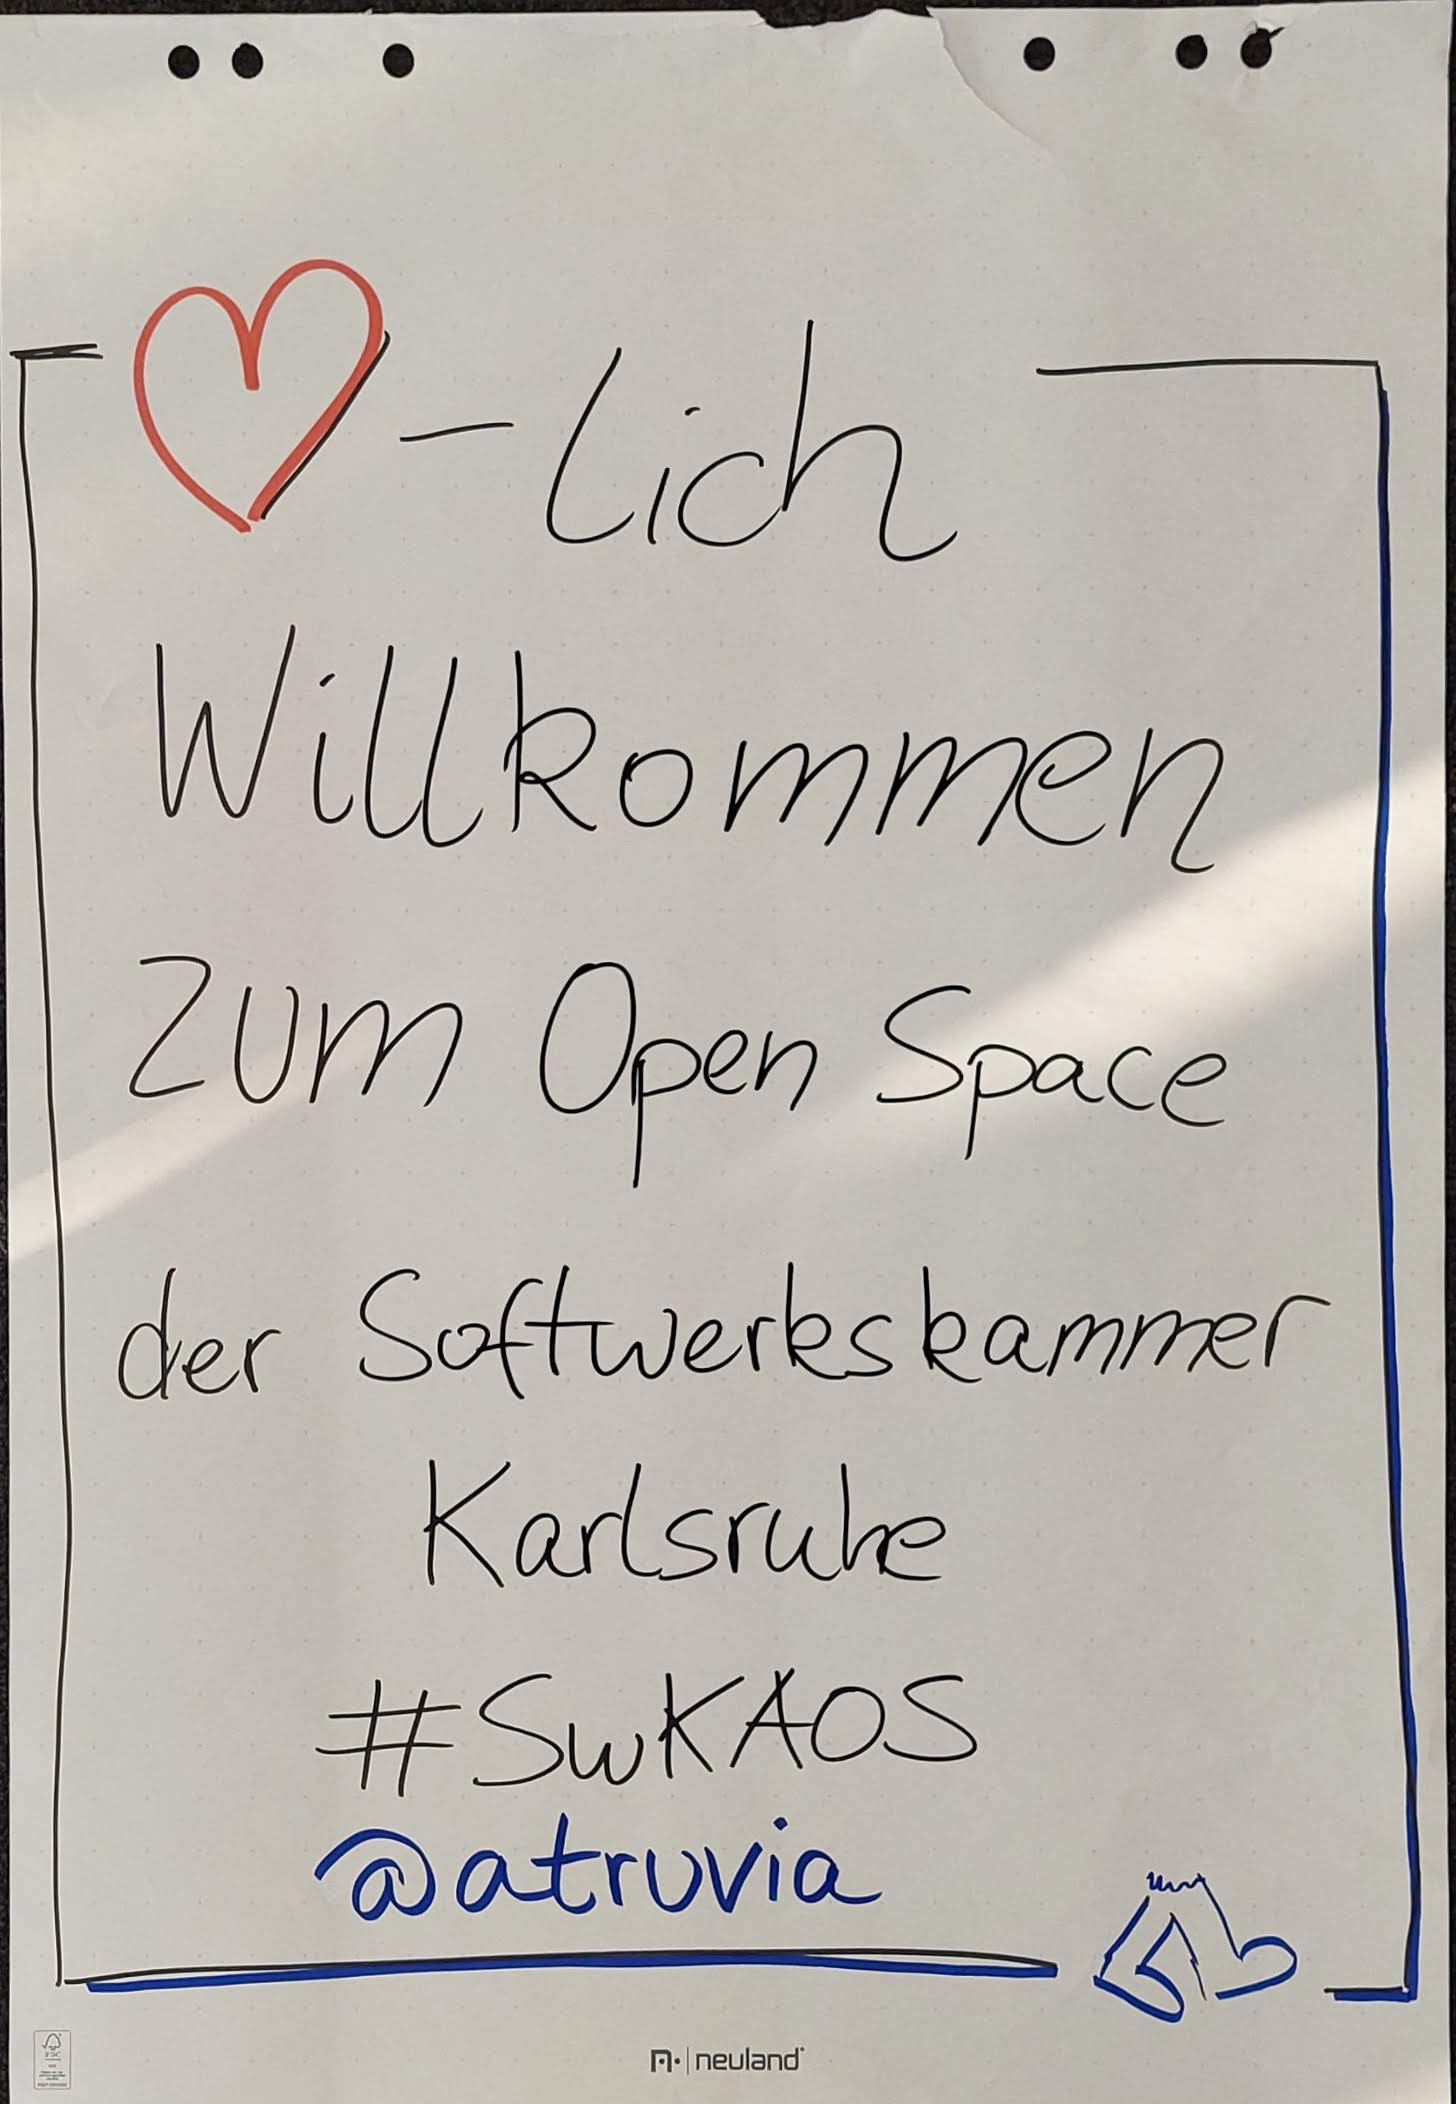 -lich
Willkommen
zum Open Space
der Softwerkskammer
Karlsruhe
#SwKAOS
@atruvia
FSC
neuland